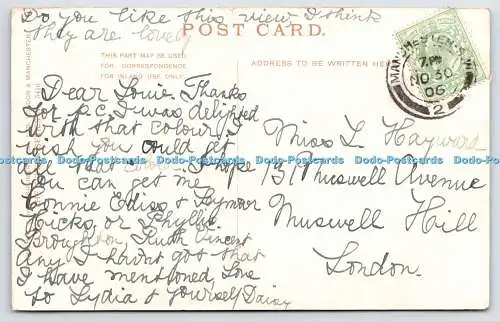 Do you like this view I think
they are lovely
POST CARD.
THIS PART MAY BE USED
FOR CORRESPONDENCE
FOR INLAND USE ONLY.
ADDRESS TO BE WRITTEN HERE
MANCHESTER
7 PM
NO 30
06
2
Dear Louie. Thanks
for p.c. I was delighted
with that colour, I
wish you could get
all that colour. I hope
you can get me
Connie Ediss & Seymour
Hicks, or Phyllis
Broughton, Ruth Vincent
any I havnt got that
I have mentioned, Love
to Lydia & yourself Daisy
Miss L Hayward
13 Muswell Avenue
Muswell Hill
London.
Dodo-Postcards